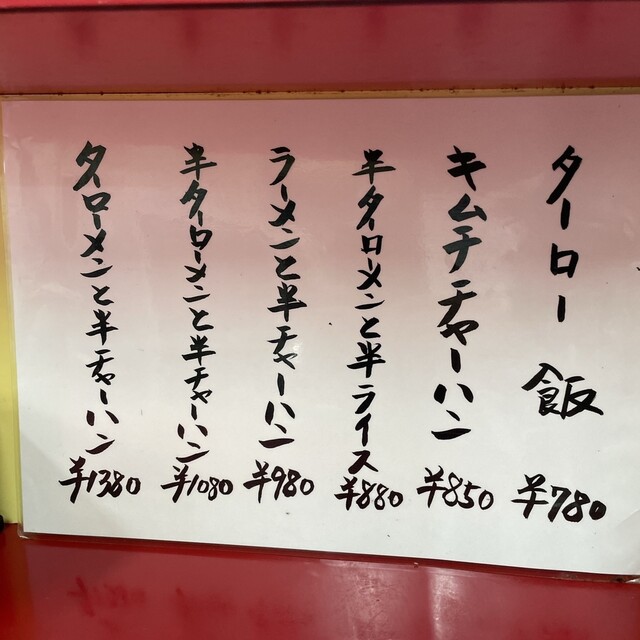 ターロー 飯 ¥780
キムチチャーハン ¥850
半タローメンと半ライス ¥880
ラーメンと半チャーハン ¥980
半ターローメンと半チャーハン ¥1080
ターローメンと半チャーハン ¥1380